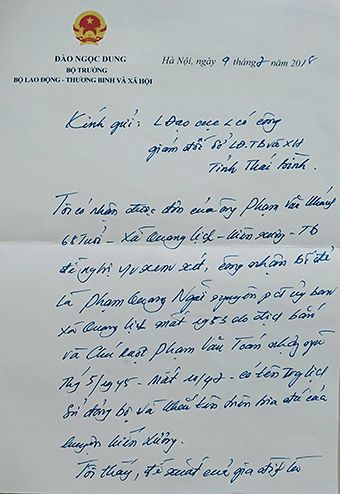 ĐÀO NGỌC DUNG
BỘ TRƯỞNG
BỘ LAO ĐỘNG - THƯƠNG BINH VÀ XÃ HỘI
Hà Nội, ngày 9 tháng 7 năm 2018
Kính gửi: L đạo cục N có công
giám đốc Sở LĐ.TB và XH
Tỉnh Thái Bình.
Tôi có nhận được đơn của ông Phạm Văn
68 tuổi - Xã Quang lịch - Kiến xương - TB
đề nghị xem xét, công nhận bố đẻ
là Phạm Quang Ngải nguyên pct ủy ban
xã Quang lịch mất 1953 do địch bắn
và Chú ruột Phạm Văn Toán nhập ngũ
Thg 5/1945 - Mất 10/47 - có tên trong lịch
sử đảng bộ và khắc tên trên bia đá của
huyện Kiến Xương.
Tôi thấy, đề xuất của gia đình là